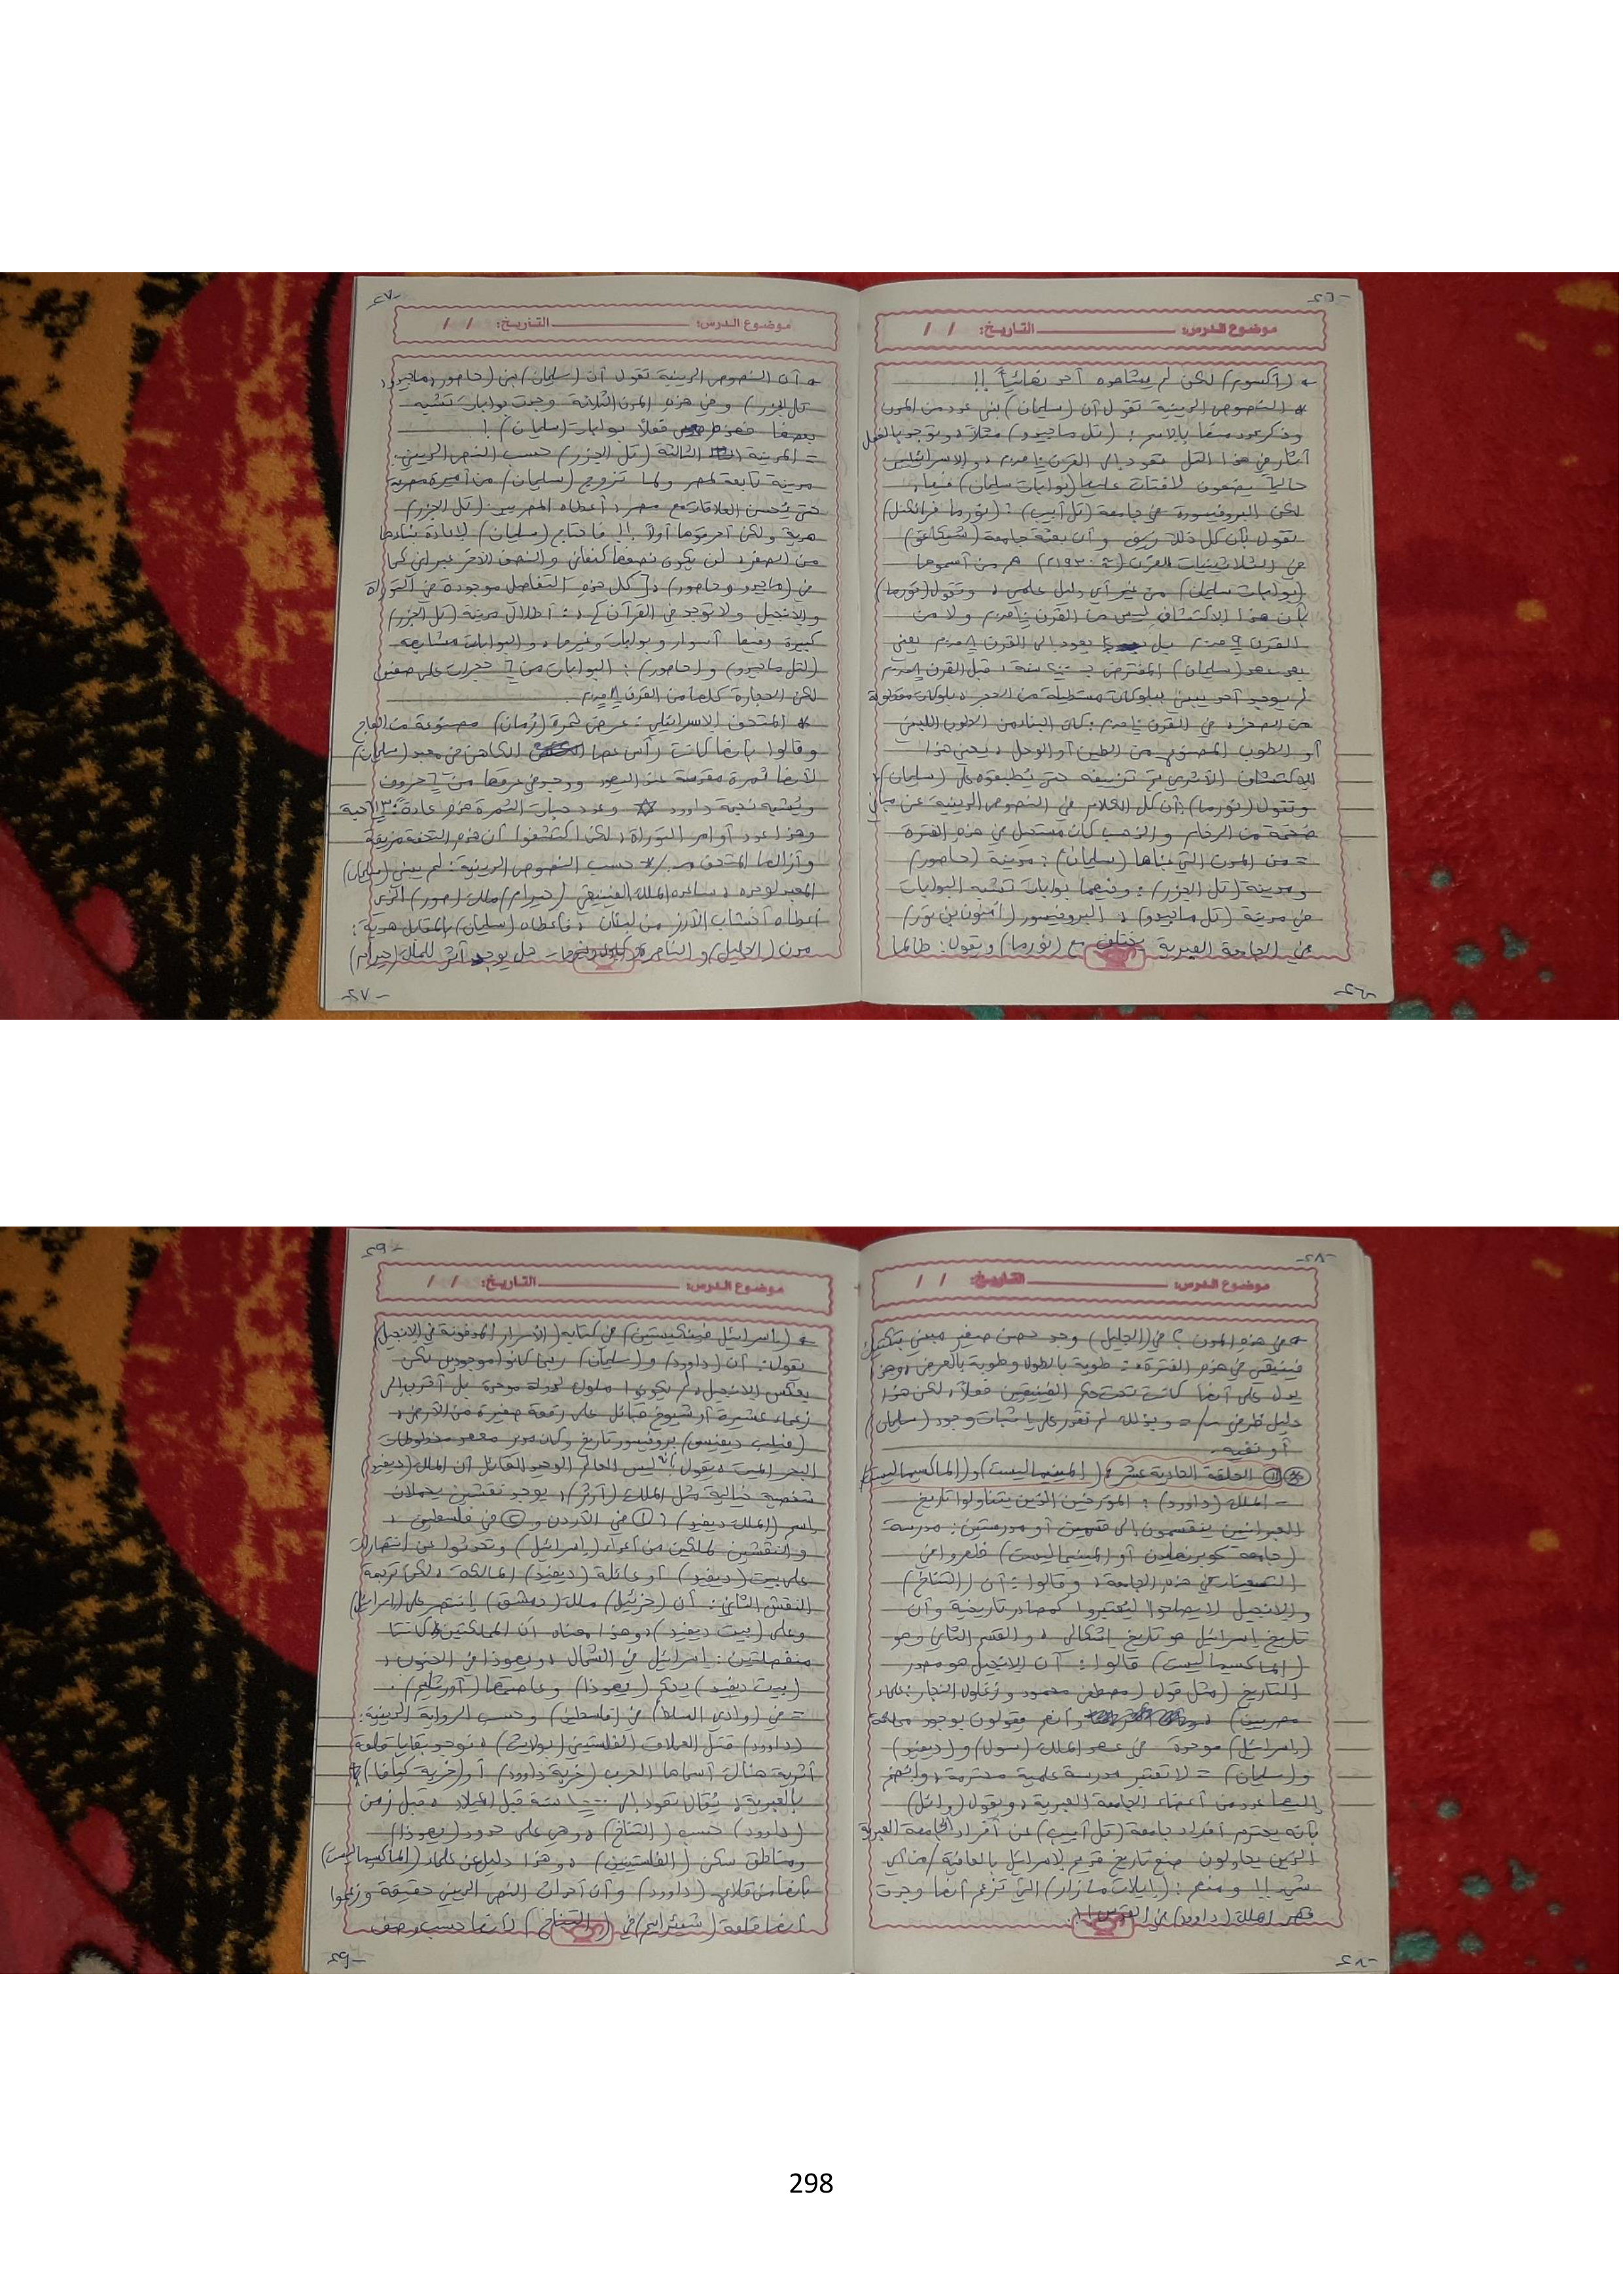 -٢٦-
موضوع الدرس: التاريخ: / /
(أكسوم) لكن لم يشاهده أحد نهائياً !!
* النصوص الدينية تقول أن (سليمان) بنى عدد من المدن
وذكر عدد منها بالاسم: (تل ماجيدو) مثلاً، ويوجد بالفعل
آثار في هذا التل تعود الى القرن ١٠ ق.م، والاسرائيليين
حالياً يضعون لافتات عليها (بوابات سليمان) فيها،
لكن البروفيسورة في جامعة (تل أبيب): (نورما فرانكلين)
تقول بأن كل ذلك زيف وأن بعثة جامعة (شيكاغو)
في الثلاثينيات القرن هم من أسموها
(بوابات سليمان) من غير أي دليل علمي، وتقول (نورما)
بأن هذا الاكتشاف ليس من القرن ١٠ ق.م ولا من
القرن ٩ ق.م بل يعود الى القرن ٨ ق.م يعني
بعد عهد (سليمان) المفترض بـ سنة، قبل القرن ٨ ق.م
لم يوجد أحد يبني ببلوكات مستطيلة من الحجر، بلوكات مقطوعة
من الصخر، في القرن ١٠ ق.م: كان البناء من الطوب اللبني
أو الطوب المصنوع من الطين أو الوحل، يعني هذا
الاكتشاف الأثري تم تزييفه حتى يُطبقوه على (سليمان)،
وتقول (نورما): أن كل الكلام في النصوص الدينية عن مباني
ضخمة من الرخام والذهب كان مستحيل في هذه الفترة
= من المدن التي بناها (سليمان): مدينة (حاصور)
ومدينة (تل الجزر): وفيهما بوابات تشبه البوابات
في مدينة (تل ماجيدو)، البروفيسور (أمنون بن تور)
في الجامعة العبرية يختلف مع (نورما) ويقول: طالما
-٢٦-
-٢٧-
موضوع الدرس: التاريخ: / /
أن النصوص الدينية تقول أن (سليمان) بنى (حاصور، ماجيدو،
تل الجزر) وفي هذه المدن الثلاثة وجدت بوابات تشبه
بعضها فهذه فعلاً بوابات (سليمان)!
= المدينة الثالثة (تل الجزر) حسب النص الديني:
مدينة تابعة لمصر ولما تزوج (سليمان) من أميرة مصرية
حتى يُحسن العلاقات مع مصر، أعطاه المصريين: (تل الجزر)
هدية ولكن أحرقوها أولاً !! فاحتاج (سليمان) لإعادة بنائها
من الصفر، لن يكون نصفها كنعاني والنصف الآخر عبراني كما
في (ماجيدو وحاصور)، [كل هذه التفاصيل موجودة في التوراة
والإنجيل ولا توجد في القرآن]،: أطلال مدينة (تل الجزر)
كبيرة وفيها أسوار وبوابات وغيرها، والبوابات مشابهة
(لتل ماجيدو) و(حاصور): البوابات من ٦ حجرات على صفين
لكن الحجارة كلها من القرن ٨ ق.م.
* المتحف الإسرائيلي: عرض ثمرة (رمان) مصنوعة من العاج
وقالوا بأنها كانت رأس عصا الكاهن في معبد (سليمان)
لأنها ثمرة مقدسة عند اليهود ووجد في عرفها من ٦ حروف
ويشبه نجمة داوود ✡ وعدد حبات الثمرة هو عادة: حبة
وهذا عدد أوامر التوراة، لكن اكتشفوا أن هذه التحفة مزيفة
وأزالها المتحف حسب النصوص الدينية: لم يبني (سليمان)
المعبد لوحده، ساعده الملك الفينيقي (حيرام/ملك صور) الذي
أعطاه أخشاب الأرز من لبنان، فأعطاه (سليمان) بالمقابل هدية:
مدن (الجليل) و(الناصرة) هل يوجد أثر للملك (حيرام)
-٢٧-
-٢٨-
موضوع الدرس: التاريخ: / /
في هذه المدن؟ في (الجليل) وجد حصن صغير مبني بتكنيك
فينيقي في هذه الفترة: طوبة بالطول وطوبة بالعرض، وهذا
يدل على أنها كانت تحت حكم الفينيقيين فعلاً، لكن هذا
دليل ظرفي = وبذلك لم نقدر على اثبات وجود (سليمان)
أو نفيه.
* ⑪ الحلقة الحادية عشر: (المينيماليست) و(الماكسيماليست)
= الملك (داوود): المؤرخين الذين يتناولوا تاريخ
العبرانيين ينقسمون إلى قسمين أو مدرستين: مدرسة
(جامعة كوبرنهاجن أو المينيماليست) ظهروا في
التسعينات في هذه الجامعة، وقالوا: أن (التناخ)
والإنجيل لا يصلحوا ليُعتبروا كمصادر تاريخية وأن
تاريخ إسرائيل هو تاريخ إشكالي، والقسم الثاني وهو
(الماكسيماليست) قالوا: أن الإنجيل هو مصدر
للتاريخ (مثل قول (مصطفى محمود وزغلول النجار: علماء
مصريين)، وأنهم يقولون بوجود مملكة
(إسرائيل) موحدة في عهد الملك (سول) و(ديفيد)
و(سليمان) = لا تعتبر مدرسة علمية محترمة، وانضم
إليها عدد من أعضاء الجامعة العبرية، ويقول (وائل)
بأنه يحترم أفراد جامعة (تل أبيب) عن أفراد الجامعة العبرية
الذين يحاولون صنع تاريخ قديم لإسرائيل بالعافية/من أي
شيء !! ومنهم: (إيلات مازار) التي تزعم أنها وجدت
قصر الملك (داوود) في القدس!!.
-٢٨-
-٢٩-
موضوع الدرس: التاريخ: / /
* (إسرائيل فينكيلستين) في كتابه (الأسرار المدفونة في الإنجيل)
يقول: أن (داوود) و(سليمان) ربما كانوا موجودين لكن
بعكس الإنجيل، لم يكونوا ملوك لدولة موحدة بل أقرب إلى
زعماء عشيرة أو شيوخ قبائل على رقعة صغيرة من الأرض،
(فيليب ديفيس) بروفيسور تاريخ وكان مدير معهد مخطوطات
البحر الميت، يقول بأنه ليس العالم الوحيد القائل أن الملك (ديفيد)
شخصية خيالية مثل الملك (آرثر)، يوجد نقشين يحملان
إسم (الملك ديفيد): ① في الأردن و② في فلسطين،
والنقشين لملكين من أعداء (إسرائيل) وتحدثوا عن انتصارات
على بيت (ديفيد) أو عائلة (ديفيد) المالكة، لكن ترجمة
النقش الثاني: أن (حزئيل) ملك (دمشق) إنتصر على (إسرائيل)
وعلى (بيت ديفيد)، وهذا معناه أن المملكتين كانتا
منفصلتين: إسرائيل في الشمال، ويهوذا في الجنوب،
(بيت ديفيد) يحكم (يهوذا) وعاصمتها (أورشليم):
= في (وادي السلا) في (فلسطين) وحسب الرواية الدينية:
(داوود) قتل العملاق الفلستيني (جولايث)، توجد بقايا قلعة
أثرية هناك أسماها العرب (خربة داوود) أو (خربة كيافا)
بالعبرية، يُقال تعود إلى ١٠٠٠ سنة قبل الميلاد، قبل زمن
(داوود) حسب (التناخ)، وهي على حدود (يهوذا)
ومناطق سكن (الفلستيين)، وهذا دليل عن علماء (الماكسيماليست)
بأنها من قلاع (داوود) وأن أحداث النص الديني حقيقة وزعموا
أنها قلعة (شعرايم) في (التناخ) لأنها حسب وصف
-٢٩-
298